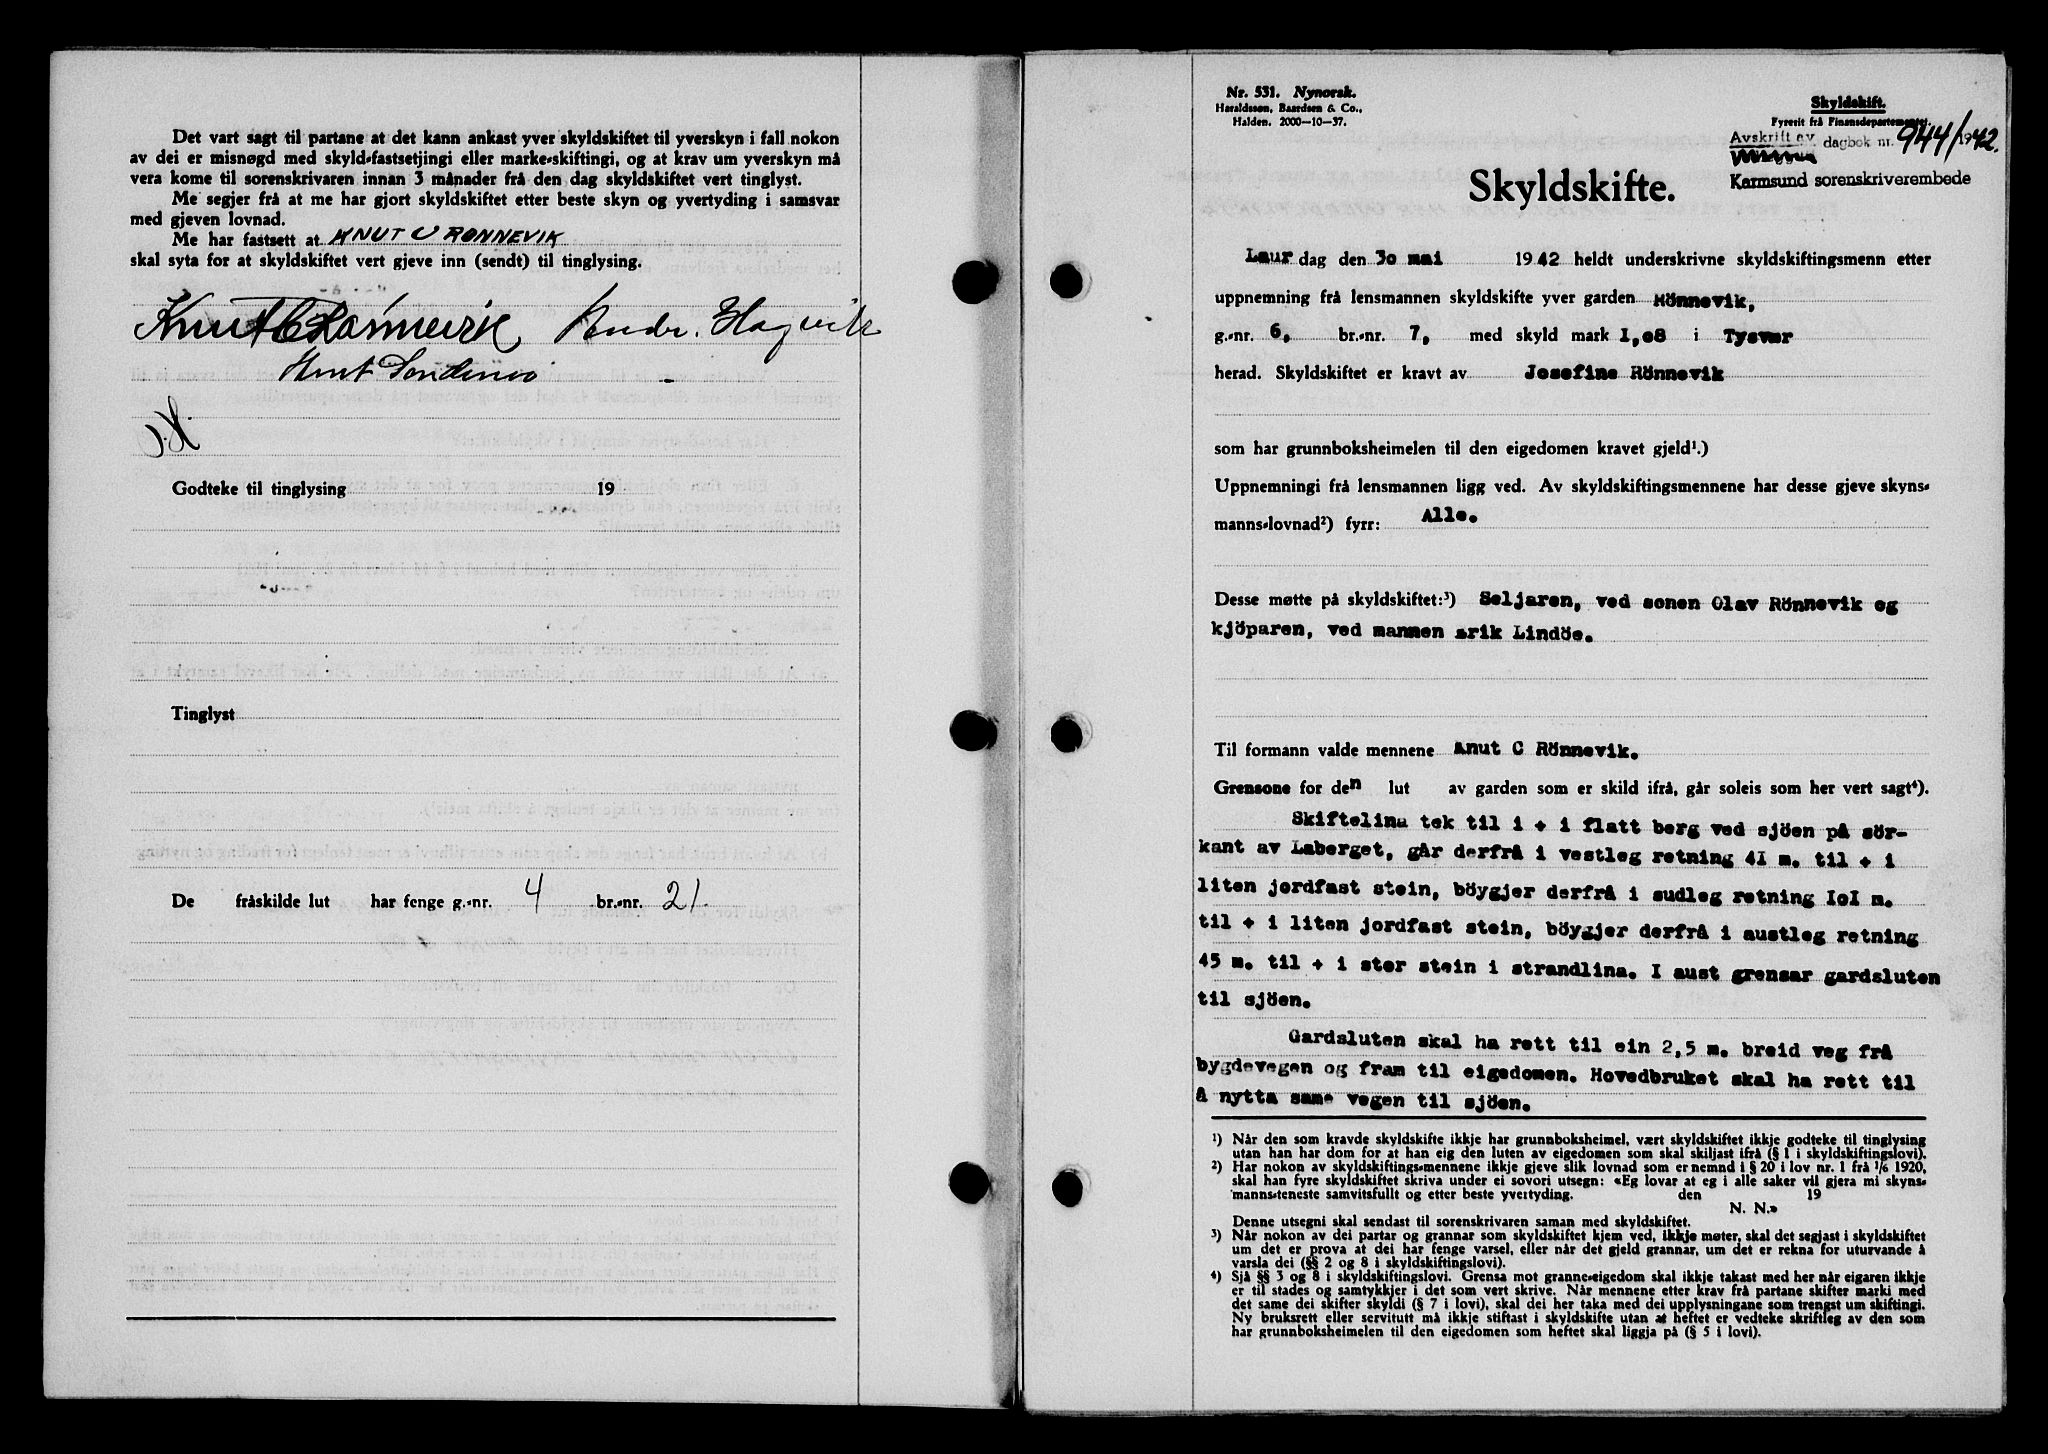 Det vart sagt til partane at det kann ankast yver skyldskiftet til yverskyn i fall nokon
av dei er misnøgd med skyld-fastsetjingi eller marke-skiftingi, og at krav um yverskyn må
vera kome til sorenskrivaren innan 3 månader frå den dag skyldskiftet vert tinglyst.
Me segjer frå at me har gjort skyldskiftet etter beste skyn og yvertyding i samsvar
med gjeven lovnad.
Me har fastsett at KNUT C RØNNEVIK
skal syta for at skyldskiftet vert gjeve inn (sendt) til tinglysing.
Knut C Rønnevik Andr. Hagvik
Knut
Godteke til tinglysing 19
Tinglyst
De fråskilde lut har fenge g.-nr. 4 br.-nr. 21.
Nr. 531. Nynorsk.
Haraldssøn, Baardsen & Co.,
Halden. 2000-10-37.
Skyldskift.
Fyrerit frå Finansdepartementet.
Avskrift av dagbok nr. 944/1942.
Karmsund sorenskriverembede
Skyldskifte.
Laur dag den 30 mai 1942 heldt underskrivne skyldskiftingsmenn etter
uppnemning frå lensmannen skyldskifte yver garden Rönnevik,
g.-nr. 6, br.-nr. 7, med skyld mark I,08 i Tysvær
herad. Skyldskiftet er kravt av Josefine Rönnevik
som har grunnboksheimelen til den eigedomen kravet gjeld¹.)
Uppnemningi frå lensmannen ligg ved. Av skyldskiftingsmennene har desse gjeve skyns-
manns-lovnad²) fyrr: Alle.
Desse møtte på skyldskiftet:³) Seljaren, ved sonen Olav Rönnevik og
kjöparen, ved mannen Erik Lindöe.
Til formann valde mennene Knut C Rönnevik.
Grensone for den lut av garden som er skild ifrå, går soleis som her vert sagt⁴).
Skiftelina tek til i + i flatt berg ved sjöen på sör-
kant av Laberget, går derfrå i vestleg retning 4I m. til + i
liten jordfast stein, böygjer derfrå i sudleg retning IoI m.
til + i liten jordfast stein, böygjer derfrå i austleg retning
45 m. til + i stor stein i strandlina. I aust grensar gardsluten
til sjöen.
Gardsluten skal ha rett til ein 2,5 m. breid veg frå
bygdevegen og fram til eigedomen. Hovedbruket skal ha rett til
å nytta same vegen til sjöen.
¹) Når den som kravde skyldskifte ikkje har grunnboksheimel, vært skyldskiftet ikkje godteke til tinglysing
utan han har dom for at han eig den luten av eigedomen som skal skiljast ifrå (§ 1 i skyldskiftingslovi).
²) Har nokon av skyldskiftings-mennene ikkje gjeve slik lovnad som er nemnd i § 20 i lov nr. 1 frå 1/6 1920,
skal han fyre skyldskiftet skriva under ei sovori utsegn: «Eg lovar at eg i alle saker vil gjera mi skyns-
manns-teneste samvitsfullt og etter beste yvertyding. den 19
N. N.»
Denne utsegni skal sendast til sorenskrivaren saman med skyldskiftet.
³) Når nokon av dei partar og grannar som skyldskiftet kjem ved, ikkje møter, skal det segjast i skyldskiftet
um det er prova at dei har fenge varsel, eller når det gjeld grannar, um det er rekna for uturvande å
varsla dei (§§ 2 og 8 i skyldskiftingslovi).
⁴) Sjå §§ 3 og 8 i skyldskiftingslovi. Grensa mot granne-eigedom skal ikkje takast med her når eigaren ikkje
er til stades og samtykkjer i det som vert skrive. Når mennene etter krav frå partane skifter marki med
det same dei skifter skyldi (§ 7 i lovi), skal dei her taka med dei upplysningane som trengst um skiftingi.
Ny bruksrett eller servitutt må ikkje stiftast i skyldskifte utan at heftet er vedteke skriftleg av den som
har grunnboksheimelen til den eigedomen som heftet skal liggja på (§ 5 i lovi).